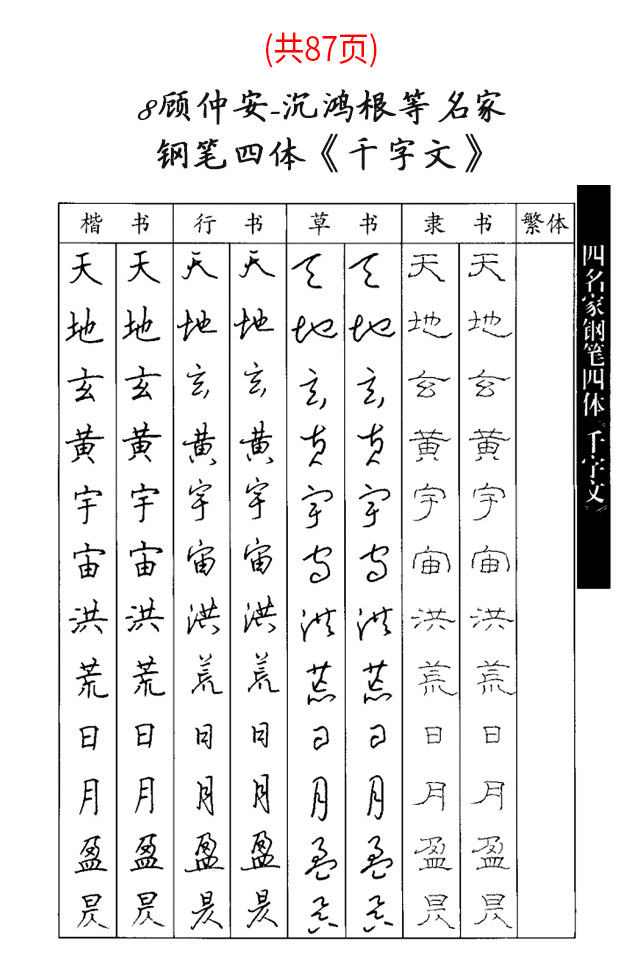 (共87页)
8顾仲安-沉鸿根等名家
钢笔四体《千字文》
楷书 行书 草书 隶书 繁体
天 天 天 天 天 天 天 天
地 地 地 地 地 地 地 地
玄 玄 玄 玄 玄 玄 玄 玄
黄 黄 黄 黄 黄 黄 黄 黄
宇 宇 宇 宇 宇 宇 宇 宇
宙 宙 宙 宙 宙 宙 宙 宙
洪 洪 洪 洪 洪 洪 洪 洪
荒 荒 荒 荒 荒 荒 荒 荒
日 日 日 日 日 日 日 日
月 月 月 月 月 月 月 月
盈 盈 盈 盈 盈 盈 盈 盈
昃 昃 昃 昃 昃 昃 昃 昃
四名家钢笔四体《千字文》